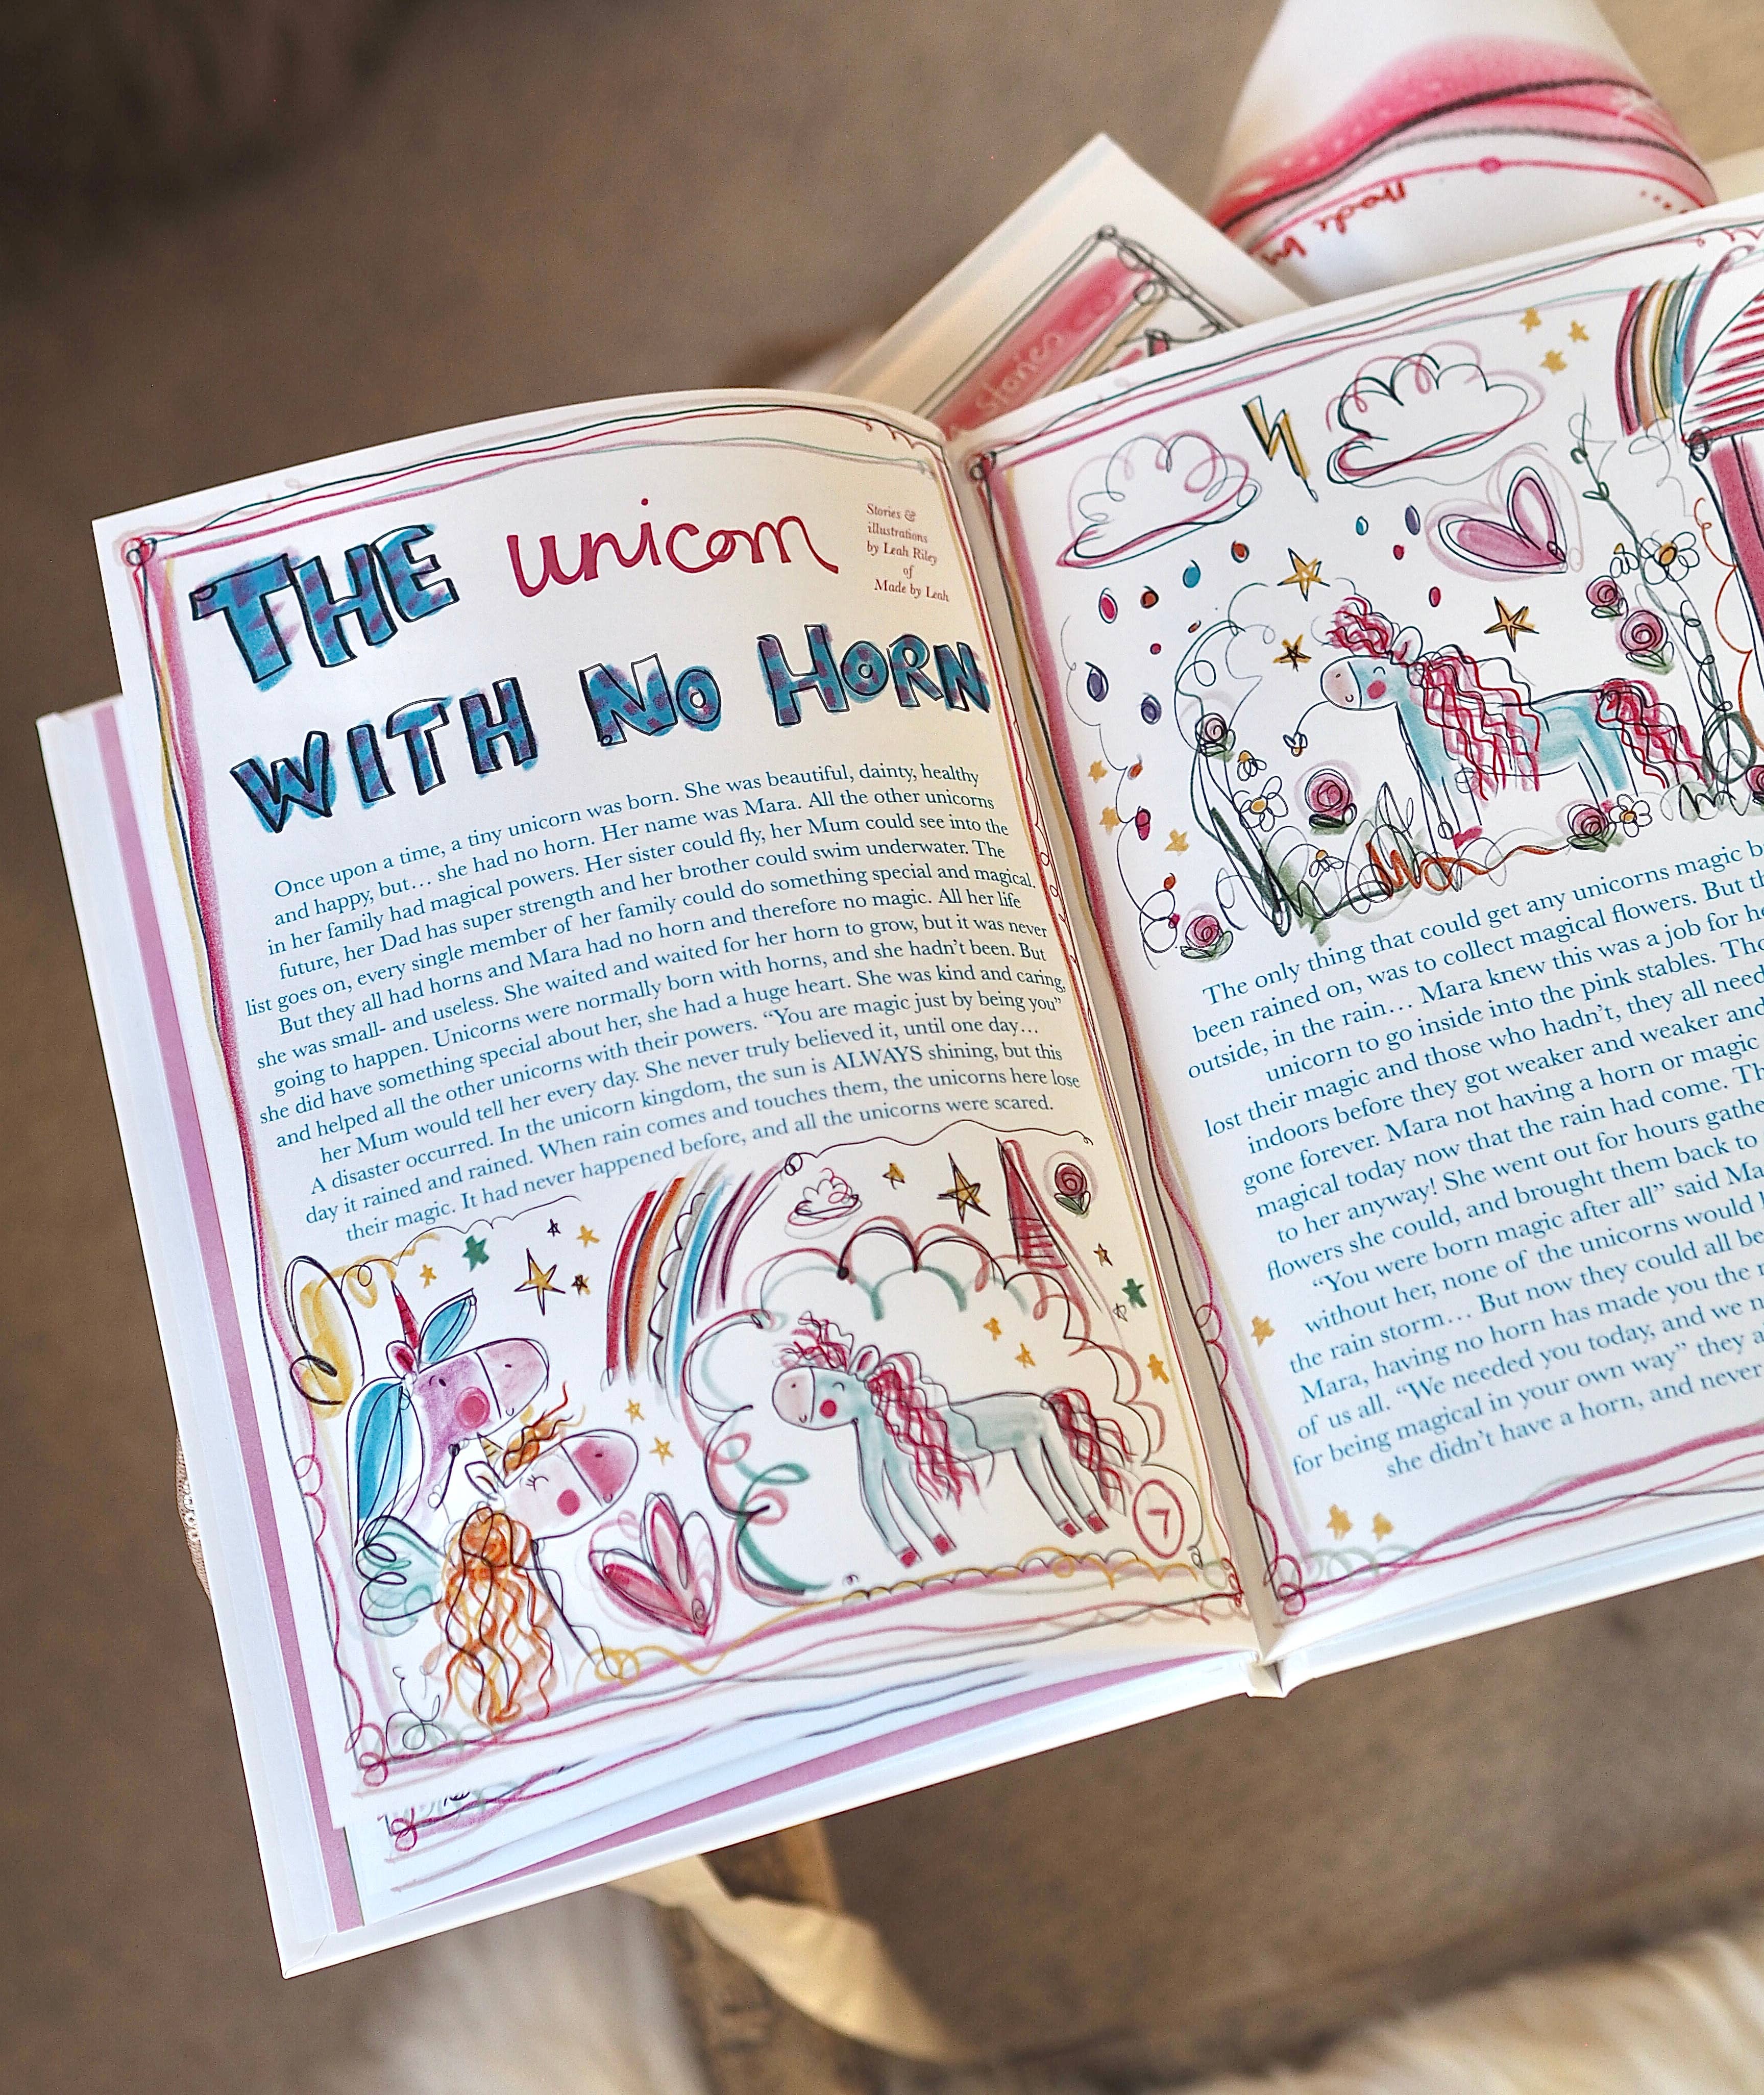 THE unicorn
WITH NO HORN
Stories &
illustrations
by Leah Riley
of
Made by Leah
Once upon a time, a tiny unicorn was born. She was beautiful, dainty, healthy
and happy, but... she had no horn. Her name was Mara. All the other unicorns
in her family had magical powers. Her sister could fly, her Mum could see into the
future, her Dad has super strength and her brother could swim underwater. The
list goes on, every single member of her family could do something special and magical.
But they all had horns and Mara had no horn and therefore no magic. All her life
she was small- and useless. She waited and waited for her horn to grow, but it was never
going to happen. Unicorns were normally born with horns, and she hadn't been. But
she did have something special about her, she had a huge heart. She was kind and caring,
and helped all the other unicorns with their powers. “You are magic just by being you”
her Mum would tell her every day. She never truly believed it, until one day...
A disaster occurred. In the unicorn kingdom, the sun is ALWAYS shining, but this
day it rained and rained. When rain comes and touches them, the unicorns here lose
their magic. It had never happened before, and all the unicorns were scared.
7
The only thing that could get any unicorns magic b
been rained on, was to collect magical flowers. But th
outside, in the rain... Mara knew this was a job for h
unicorn to go inside into the pink stables. Tho
lost their magic and those who hadn't, they all need
indoors before they got weaker and weaker and
gone forever. Mara not having a horn or magic
magical today now that the rain had come. Th
to her anyway! She went out for hours gathe
flowers she could, and brought them back to
“You were born magic after all” said Ma
without her, none of the unicorns would
the rain storm... But now they could all be
Mara, having no horn has made you the m
of us all. “We needed you today, and we n
for being magical in your own way” they a
she didn't have a horn, and never
Stories
made by